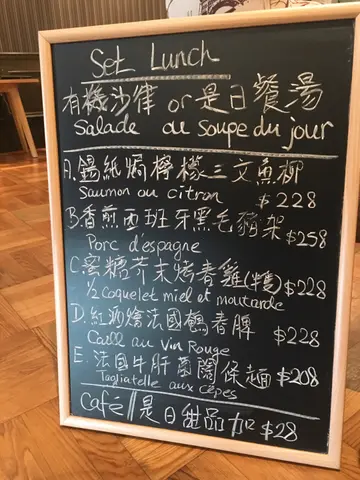 Set Lunch
有機沙律 or 是日餐湯
Salade ou Soupe du jour
A. 錫紙焗檸檬三文魚柳
Saumon au citron $228
B. 香煎西班牙黑毛豬架 $258
Porc d'espagne
C. 蜜糖芥末烤春雞(半隻) $228
1/2 Coquelet miel et moutarde
D. 紅酒燴法國鵪春脾 $228
Caill au Vin Rouge
E. 法國牛肝菌闊條麵 $208
Tagliatelle aux cèpes
Café || 是日甜品 加 $28